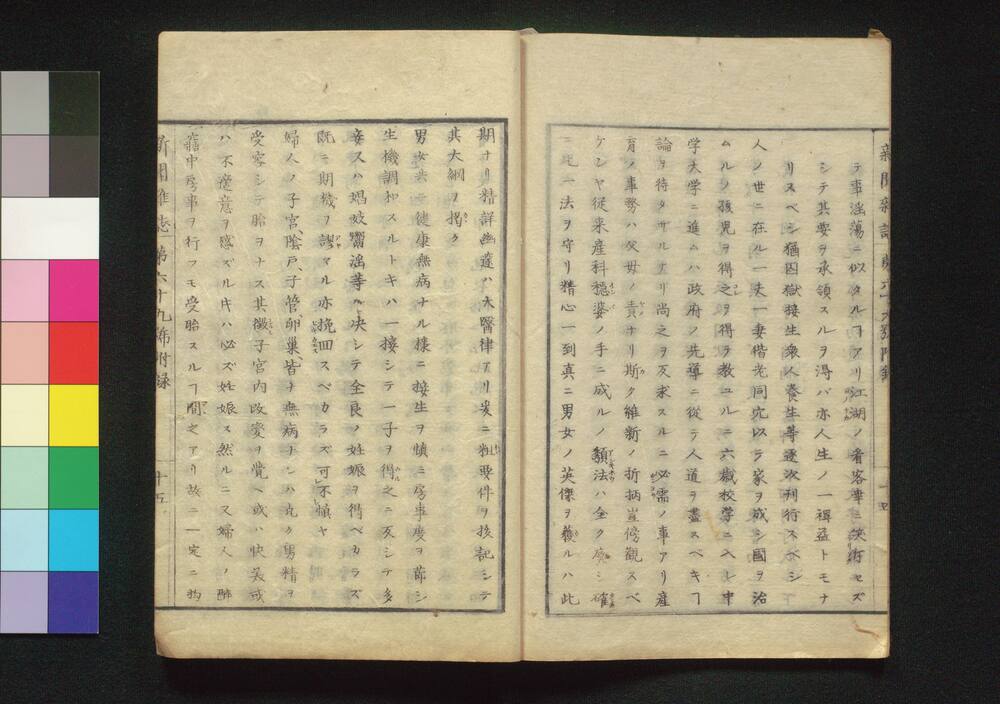 テ事淫蕩ニ似タルヿアリ江湖ノ看客筆ニ笑付セズ
シテ其要ヲ承領スルヲ得バ亦人生ノ一裨益トモナ
リスベシ猶囚獄接生衆人養生等逐次刊行スベシ
人ノ世ニ在ル一夫一妻偕老同穴以ラ家ヲ成シ國ヲ治
ムルノ孩児ヲ得之ヲ得テ教ユルニ六歳校学ニ入レ中
学大学ニ進ムハ政府ノ先導ニ従テ人道ヲ盡スベキヿ
論ヲ待タザルナリ尚之ヲ反求スルニ必需ノ事アリ産
育ノ事勢ハ父母ノ責ナリ斯ク維新ノ折柄豈傍観スベ
ケンヤ従来産科穏婆ノ手ニ成ルノ類法ハ全ク廃シ確
二此一法ヲ守リ精心一到真ニ男女ノ英傑ヲ獲ルハ此
期ナリ精詳幽遠ハ大醫律アリ爰ニ粗要件ヲ抜記シテ
其大綱ヲ掲ク
男女共ニ健康無病ナル様ニ接生ヲ慎ニ房事度ヲ節シ
生機調和スルトキハ一接シテ一子ヲ得之ニ反シテ多
妾スハ娼妓鬻淫等ハ决シテ全良ノ妊娠ヲ得ベカラズ
既ニ期機ヲ謬マル亦挽回スベカラズ可不愼ヤ
婦人ノ子宮、陰戸、子管、卵巣、皆ナ無病ナレハ克ク男精ヲ
受容シテ胎ヲナス其徴子宮内改変ヲ覚ヘ或ハ快美或
ハ不産意ヲ感ズル片ハ必ズ妊娠ス然ルニ又婦人ノ酔
寤中房事ヲ行フモ受胎スルヿ間之アリ故ニ一定ニ拘
新聞雑誌 第六十九號附録 十五